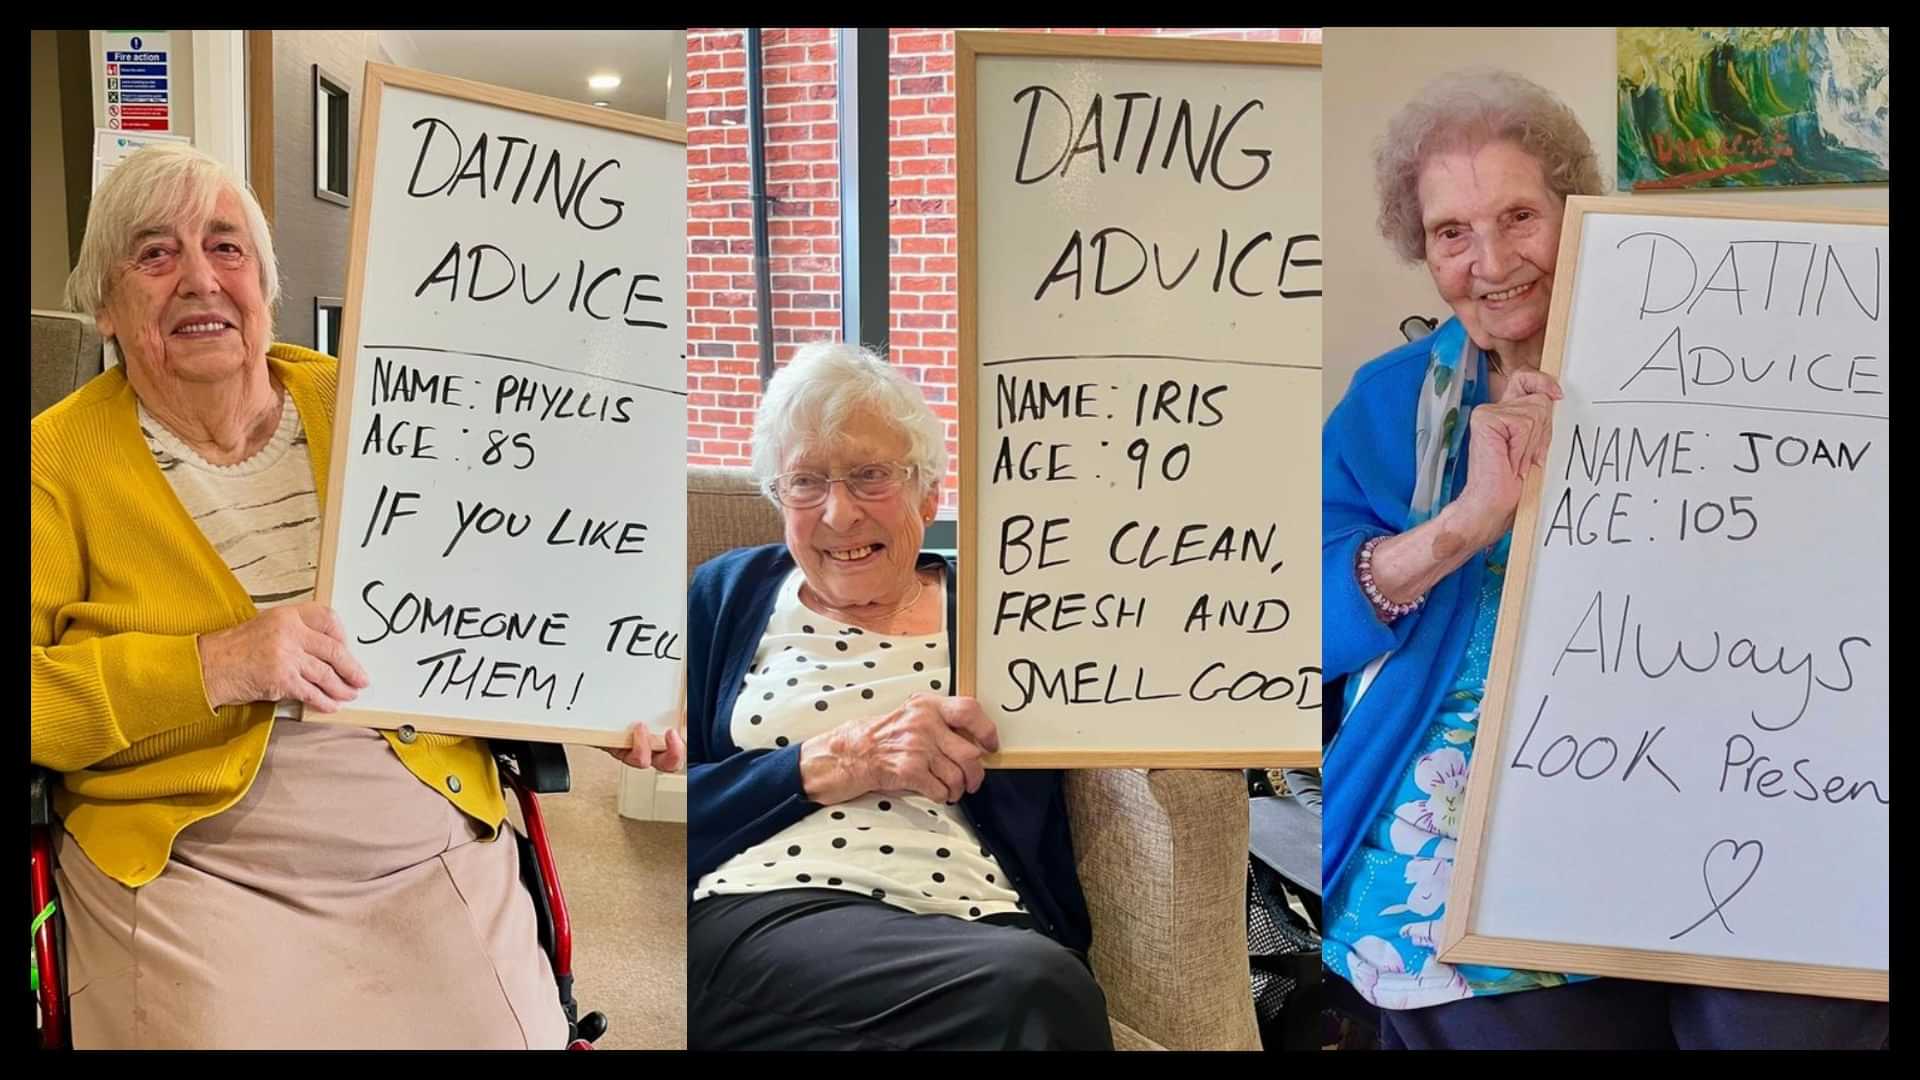 Fire action
DATING
ADVICE
NAME: PHYLLIS
AGE: 85
IF YOU LIKE
SOMEONE TELL
THEM!
DATING
ADVICE
NAME: IRIS
AGE: 90
BE CLEAN,
FRESH AND
SMELL GOOD
DATIN
ADVICE
NAME: JOAN
AGE: 105
Always
LOOK PreSen